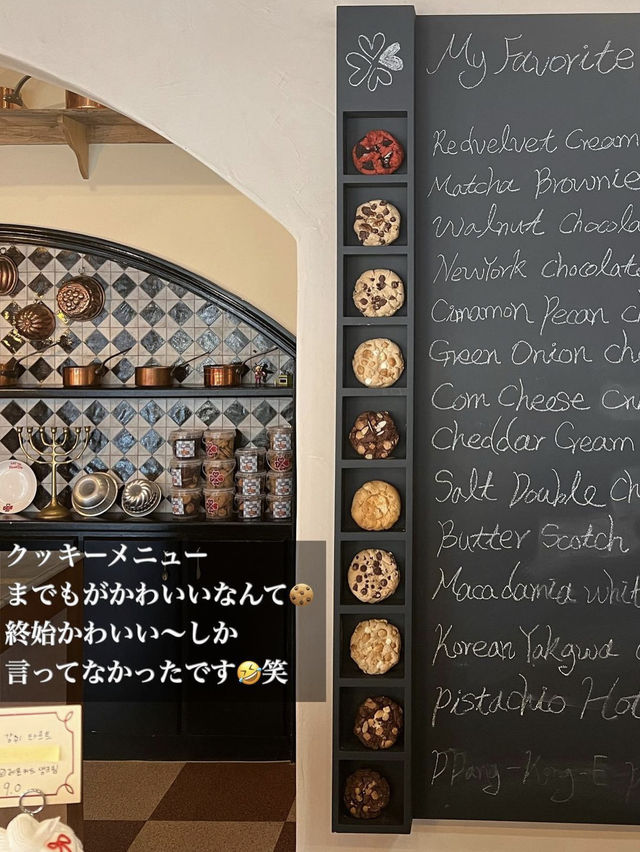 My Favorite
Redvelvet Cream
Matcha Brownie
Walnut Chocola
NewYork Chocolate
Cinnamon Pecan
Green Onion Che
Corn Cheese
Cheddar Cream
Salt Double Ch
Butter Scotch
Macadamia whit
Korean Yakgwa
Pistachio Hot
PPang-Kong-E
クッキーメニュー
までもがかわいいなんて🍪
終始かわいい〜しか
言ってなかったです🤣笑
타르트
9.0